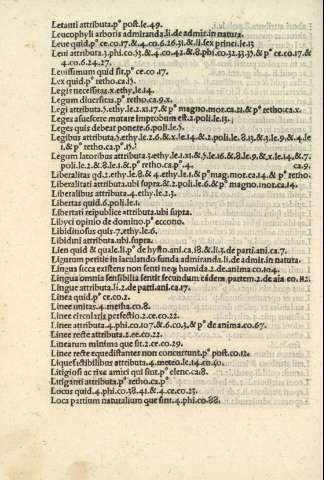 Letanti attributa.pᵒ post.le.49.
Leucophyli arboris admiranda.li.de admir.in natura.
Leue quid.pᵒ ce.co.17.&.4.co.6.26.31.& li.sex princi.le.13
Leui attributa.3.phi.co.53.&.4.co.42.& 8.phi.co.32.33.35.& pᵒ ce.co.17.&
4.co.6.24.27.
Leuissimum quid sit.pᵒ ce.co.17.
Lex quid.pᵒ retho.ca.13.
Legis necessitas.x.ethy.le.14.
Legum diuersitas.pᵒ retho.ca.9.x.
Legi attributa.5.ethy.le.2.11.17.& pᵒ magno.mor.ca.21.& pᵒ retho:ca.x.
Leges asuescere mutare improbum est.2.poli.le.13.
Leges quis debeat ponere.6.poli.le.5.
Legibus attributa.5.ethy.le.2.6.& x.le.14.& 2.poli.le.8.13.& 3.le.9.& 4.le
1.& pᵒ retho.ca.pᵒ.15.
Legum latoribus attributa.5.ethy.le.1.11.& 5.le.16.& 8.le.9.& x.le.14.&.7.
poli.le.2.& 8.le.1.& pᵒ retho.ca.pᵒ.4. ca.9.
Liberalitas qd.2.ethy.le.8.& 4.ethy.le.1.& pᵒ mag.mor.ca.14.& pᵒ retho.
Liberalitati attributa.ubi supra.& 2.poli.le.6.& pᵒ magno.mor.ca.14.
Liberalibus attributa.4.ethy.le.2.3.
Libertas quid.6.poli.le.1.
Libertati reipublice attributa.ubi supra.
Libyci opinio de domino pᵒ eccono.
Libidinosus quis.7.ethy.le.6.
Libidini attributa.ubi supra.
Lien quid & quale.li.pᵒ de hysto.ani.ca.18.& li.3.de parti.ani.ca.7.
Ligurum peritie in iaculando funda admiranda.li.de admir.in natura.
Lingua sicca existens non sentit neq humida.2.de anima.co.104.
Lingua omnia sensibilia sentit secundum eãdem partem.2.de aia co.
Lingue attributa.li.2.de parti.ani.ca.17.
Linea quid.pᵒ ce.co.2.
Linee unitas.4.metha.co.8.
Linee circularis perfectio.2.ce.co.22.
Linee attributa.4.phi.co.107.& 6.co.3.& pᵒ de anima.co.67.
Linee recte attributa.2.ce.co.22.
Linearum minima que sit.2.ce.co.29.
Linee recte equedistantes non concurrunt.pᵒ post.co.12.
Liquefactibilibus attributa.4.meteo.le.14.co.40.
Litigiosi ac rixe amici qui sint.pᵒ elenc.ca.8.
Litiganti attributa.pᵒ retho.ca.pᵒ
Locus quid.4.phi.co.38.41.& 4.ce.co.23.
Loca partium naturalium que sint.4.phi.co.88.